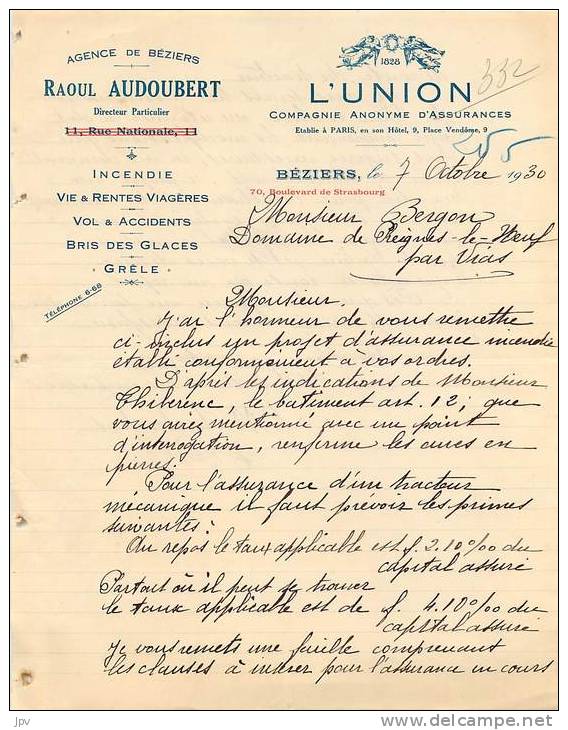 AGENCE DE BÉZIERS
RAOUL AUDOUBERT
Directeur Particulier
11, Rue Nationale, 11
INCENDIE
VIE & RENTES VIAGÈRES
VOL & ACCIDENTS
BRIS DES GLACES
GRÊLE
TÉLÉPHONE 6-68
1828
L'UNION
COMPAGNIE ANONYME D'ASSURANCES
Etablie à PARIS, en son Hôtel, 9, Place Vendôme, 9
332
255
BÉZIERS, le 7 Octobre 1930
70, Boulevard de Strasbourg
Monsieur Bergon
Domaine de Preignes-le-Neuf
par Vias
Monsieur.
J'ai l'honneur de vous remettre
ci-inclus un projet d'assurance incendie
établi conformément à vos ordres.
D'après les indications de Monsieur
Thiberenc, le bâtiment art. 12; que
vous avez mentionné avec un point
d'interrogation, renferme les cuves en
pierres.
Pour l'assurance d'un tracteur
mécanique il faut prévoir les primes
suivantes:
Au repos le taux applicable est f. 2.10 %00 du
capital assuré
Partout où il peut se trouver
le taux applicable est de f. 4.10 %00 du
capital assuré
Je vous remets une feuille comprenant
les clauses à insérer pour l'assurance en cours
JPV
www.delcampe.net